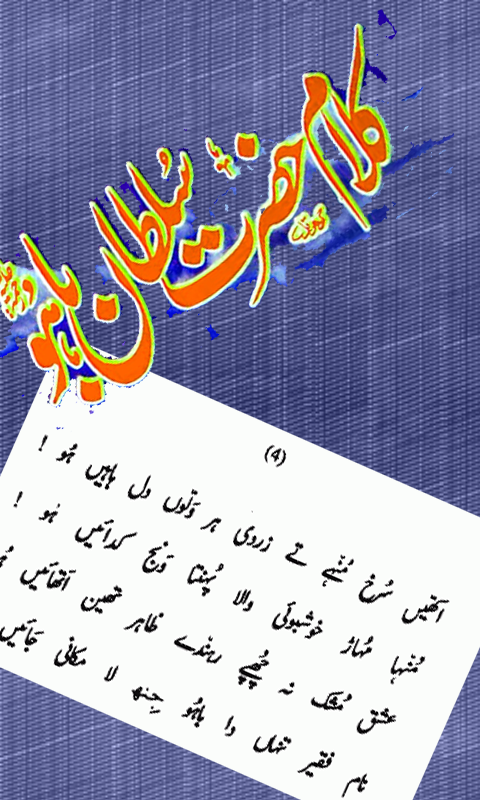 کلام حضرت سُلطان باہو
(4)
اَکھیں سُرخ مُنہیں تے زردی ہر وَلّوں دل ہاہیں ہُو !
مُنہا مُہاڑ خوشبوئی والا پُہنتا وَنج کدائیں ہُو !
عشق مُشک نہ چُھپے رہندے ظاہر تھین اُتھائیں
نام فقیر تنہاں دا باہُو جنہ لا مکانی جائیں